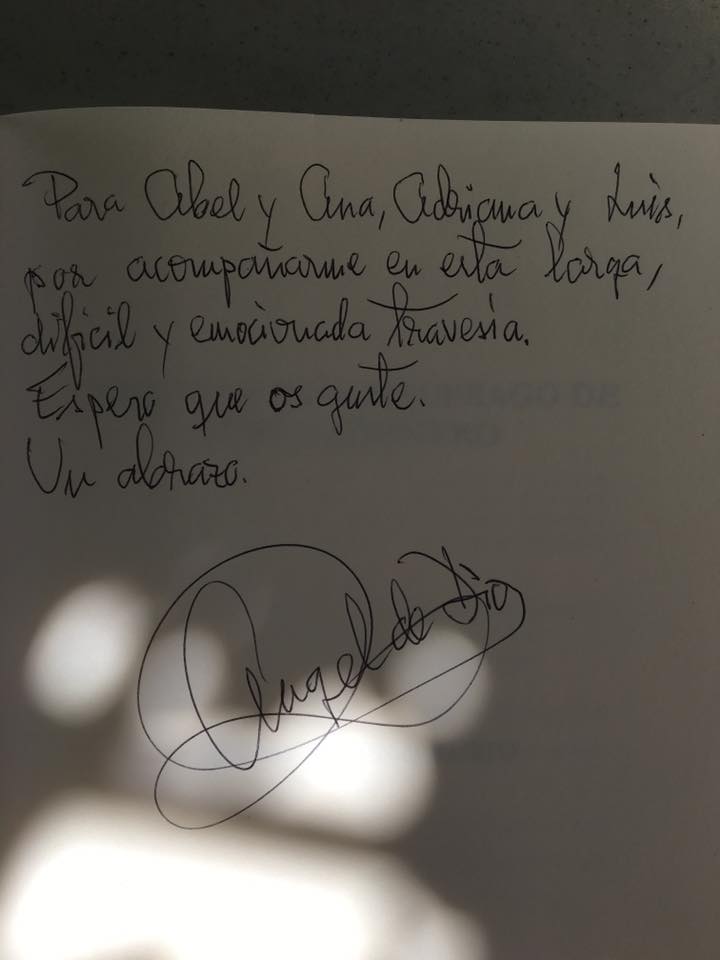 Para Abel y Ana, Adriana y Luis,
por acompañarme en esta larga,
difícil y emocionada travesía.
Espero que os guste.
Un abrazo.
Ángel de Dios